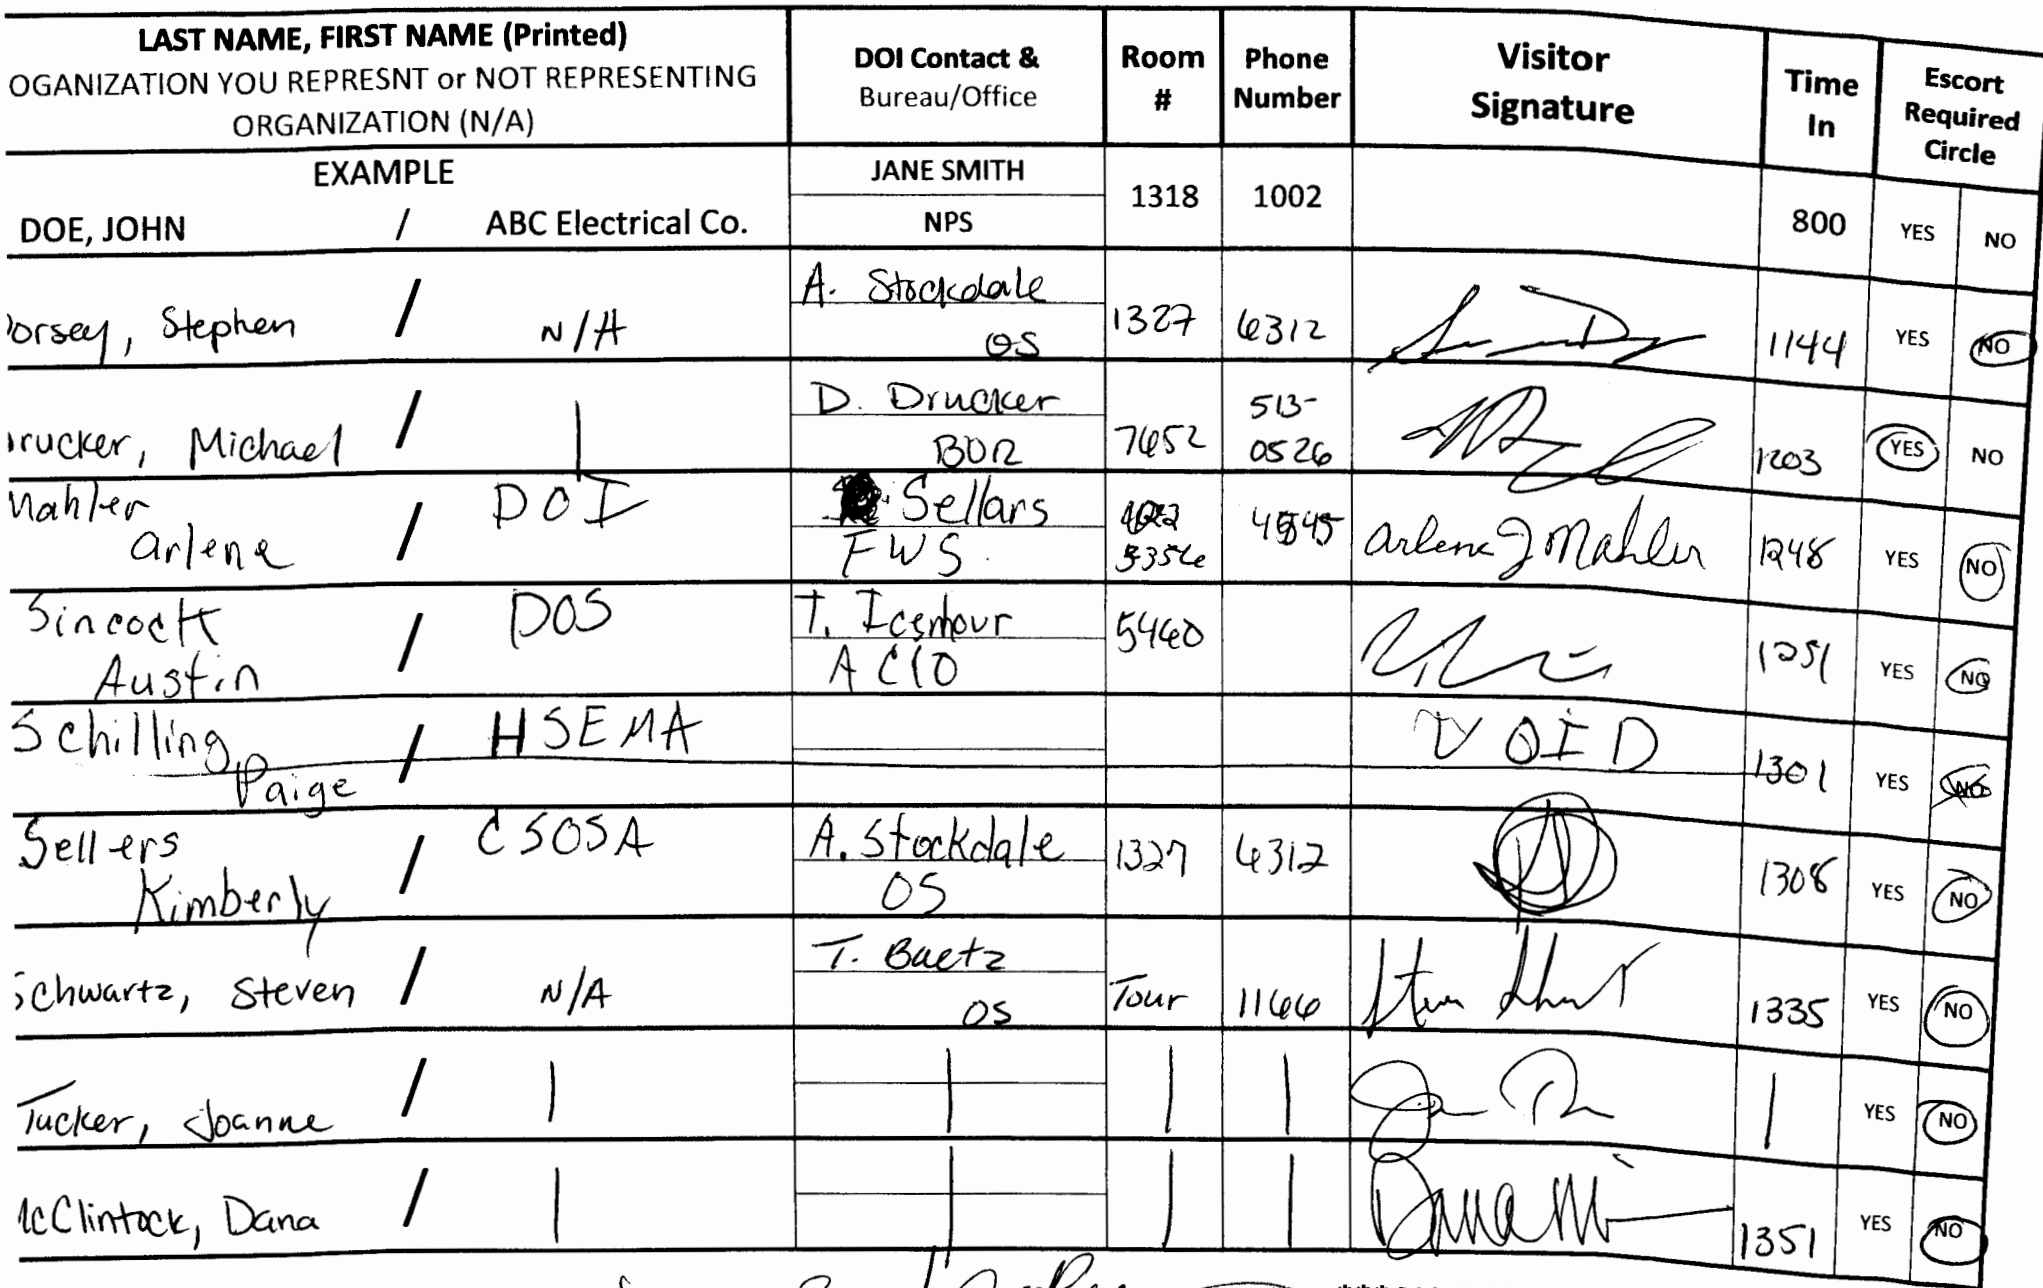 LAST NAME, FIRST NAME (Printed)
OGANIZATION YOU REPRESNT or NOT REPRESENTING
ORGANIZATION (N/A)
DOI Contact &
Bureau/Office
Room
#
Phone
Number
Visitor
Signature
Time
In
Escort
Required
Circle
EXAMPLE
DOE, JOHN / ABC Electrical Co.
JANE SMITH
NPS
1318 1002 800 YES NO
orsey, Stephen / N/A
A. Stockdale
OS
1327 6312 1144 YES NO
rucker, Michael / |
D. Drucker
BOR
7652 513-
0526 1203 YES NO
Mahler
Arlene / DOI
Sellars
FWS
5356 4545 Arlene J Mahler 1248 YES NO
Sincock
Austin / DOS
T.
ACIO
5460 1251 YES NO
Schilling,
Paige / HSEMA
VOID 1301 YES NO
Sellers
Kimberly / CSOSA
A. Stockdale
OS
1327 6312 1308 YES NO
Schwartz, Steven / N/A
T. Baetz
OS
Tour 1166 1335 YES NO
Tucker, Joanne / | | | | | YES NO
McClintock, Dana / | | | | Dana M 1351 YES NO